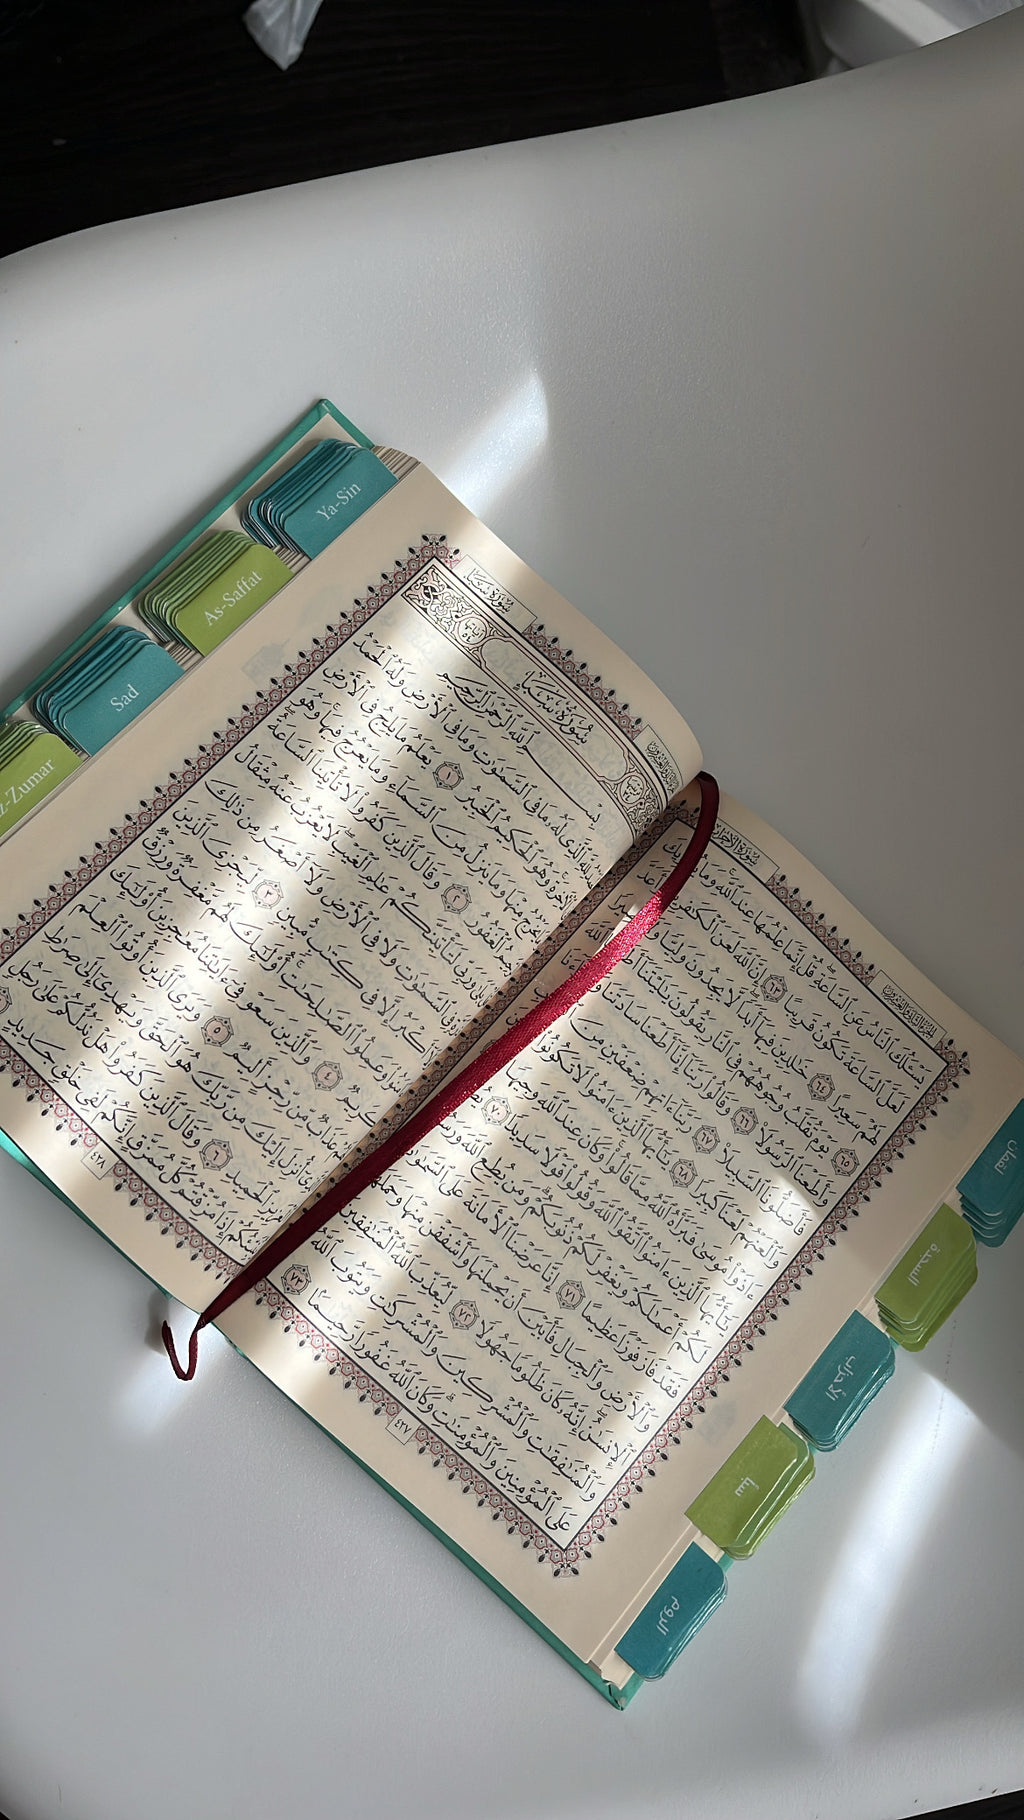 سُورَةُ الأَحْزَابِ
الجُزْءُ الثَّانِي وَالعِشْرُونَ
يَسْـَٔلُكَ ٱلنَّاسُ عَنِ ٱلسَّاعَةِۖ قُلْ إِنَّمَا عِلْمُهَا عِندَ ٱللَّهِۚ وَمَا يُدْرِيكَ
لَعَلَّ ٱلسَّاعَةَ تَكُونُ قَرِيبًا ٦٣ إِنَّ ٱللَّهَ لَعَنَ ٱلْكَٰفِرِينَ وَأَعَدَّ
لَهُمْ سَعِيرًا ٦٤ خَٰلِدِينَ فِيهَآ أَبَدًاۖ لَّا يَجِدُونَ وَلِيًّا وَلَا
٦٥ يَوْمَ تُقَلَّبُ وُجُوهُهُمْ فِى ٱلنَّارِ يَقُولُونَ يَٰلَيْتَنَآ أَطَعْنَا ٱللَّهَ
وَأَطَعْنَا ٱلرَّسُولَا۠ ٦٦ وَقَالُوا۟ رَبَّنَآ إِنَّآ أَطَعْنَا سَادَتَنَا
فَأَضَلُّونَا ٱلسَّبِيلَا۠ ٦٧ رَبَّنَآ ءَاتِهِمْ ضِعْفَيْنِ مِنَ
وَٱلْعَنْهُمْ لَعْنًا كَبِيرًا ٦٨ يَٰٓأَيُّهَا ٱلَّذِينَ ءَامَنُوا۟ لَا تَكُونُوا۟
ءَاذَوْا۟ مُوسَىٰ فَبَرَّأَهُ ٱللَّهُ مِمَّا قَالُوا۟ۚ وَكَانَ عِندَ ٱللَّهِ وَجِيهًا
يَٰٓأَيُّهَا ٱلَّذِينَ ءَامَنُوا۟ ٱتَّقُوا۟ ٱللَّهَ وَقُولُوا۟ قَوْلًا سَدِيدًا ٧٠ يُصْلِحْ
لَكُمْ أَعْمَٰلَكُمْ وَيَغْفِرْ لَكُمْ ذُنُوبَكُمْۗ وَمَن يُطِعِ ٱللَّهَ وَرَسُولَهُۥ
فَقَدْ فَازَ فَوْزًا عَظِيمًا ٧١ إِنَّا عَرَضْنَا ٱلْأَمَانَةَ عَلَى ٱلسَّمَٰوَٰتِ
وَٱلْأَرْضِ وَٱلْجِبَالِ فَأَبَيْنَ أَن يَحْمِلْنَهَا وَأَشْفَقْنَ مِنْهَا وَحَمَلَهَا
ٱلْإِنسَٰنُۖ إِنَّهُۥ كَانَ ظَلُومًا جَهُولًا ٧٢ لِّيُعَذِّبَ ٱللَّهُ ٱلْمُنَٰفِقِينَ
وَٱلْمُنَٰفِقَٰتِ وَٱلْمُشْرِكِينَ وَٱلْمُشْرِكَٰتِ وَيَتُوبَ ٱللَّهُ
عَلَى ٱلْمُؤْمِنِينَ وَٱلْمُؤْمِنَٰتِۗ وَكَانَ ٱللَّهُ غَفُورًا رَّحِيمًا ٧٣
٤٢٧
سُورَةُ سَبَإٍ
سُورَةُ سَبَإٍ
آيَاتُهَا ٥٤
بِسْمِ ٱللَّهِ ٱلرَّحْمَٰنِ ٱلرَّحِيمِ
ٱلْحَمْدُ لِلَّهِ ٱلَّذِى لَهُۥ مَا فِى ٱلسَّمَٰوَٰتِ وَمَا فِى ٱلْأَرْضِ وَلَهُ ٱلْحَمْدُ
فِى ٱلْءَاخِرَةِۚ وَهُوَ ٱلْحَكِيمُ ٱلْخَبِيرُ ١ يَعْلَمُ مَا يَلِجُ فِى ٱلْأَرْضِ
وَمَا يَخْرُجُ مِنْهَا وَمَا يَنزِلُ مِنَ ٱلسَّمَآءِ وَمَا يَعْرُجُ فِيهَاۚ وَهُوَ
ٱلرَّحِيمُ ٱلْغَفُورُ ٢ وَقَالَ ٱلَّذِينَ كَفَرُوا۟ لَا تَأْتِينَا ٱلسَّاعَةُۖ
قُلْ بَلَىٰ وَرَبِّى لَتَأْتِيَنَّكُمْ عَٰلِمِ ٱلْغَيْبِۖ لَا يَعْزُبُ عَنْهُ مِثْقَالُ
ذَرَّةٍ فِى ٱلسَّمَٰوَٰتِ وَلَا فِى ٱلْأَرْضِ وَلَآ أَصْغَرُ مِن ذَٰلِكَ
وَلَآ أَكْبَرُ إِلَّا فِى كِتَٰبٍ مُّبِينٍ ٣ لِّيَجْزِىَ ٱلَّذِينَ
ءَامَنُوا۟ وَعَمِلُوا۟ ٱلصَّٰلِحَٰتِۚ أُو۟لَٰٓئِكَ لَهُم مَّغْفِرَةٌ وَرِزْقٌ
كَرِيمٌ ٤ وَٱلَّذِينَ سَعَوْ فِىٓ ءَايَٰتِنَا مُعَٰجِزِينَ أُو۟لَٰٓئِكَ
لَهُمْ عَذَابٌ مِّن رِّجْزٍ أَلِيمٌ ٥ وَيَرَى ٱلَّذِينَ أُوتُوا۟ ٱلْعِلْمَ
ٱلَّذِىٓ أُنزِلَ إِلَيْكَ مِن رَّبِّكَ هُوَ ٱلْحَقَّ وَيَهْدِىٓ إِلَىٰ صِرَٰطِ
ٱلْعَزِيزِ ٱلْحَمِيدِ ٦ وَقَالَ ٱلَّذِينَ كَفَرُوا۟ هَلْ نَدُلُّكُمْ عَلَىٰ رَجُلٍ
يُنَبِّئُكُمْ إِذَا مُزِّقْتُمْ كُلَّ مُمَزَّقٍ إِنَّكُمْ لَفِى خَلْقٍ جَدِيدٍ ٧
٤٢٨
Ya-Sin
As-Saffat
Sad
z-Zumar
لقمان
السجدة
الأحزاب
سبأ
الروم